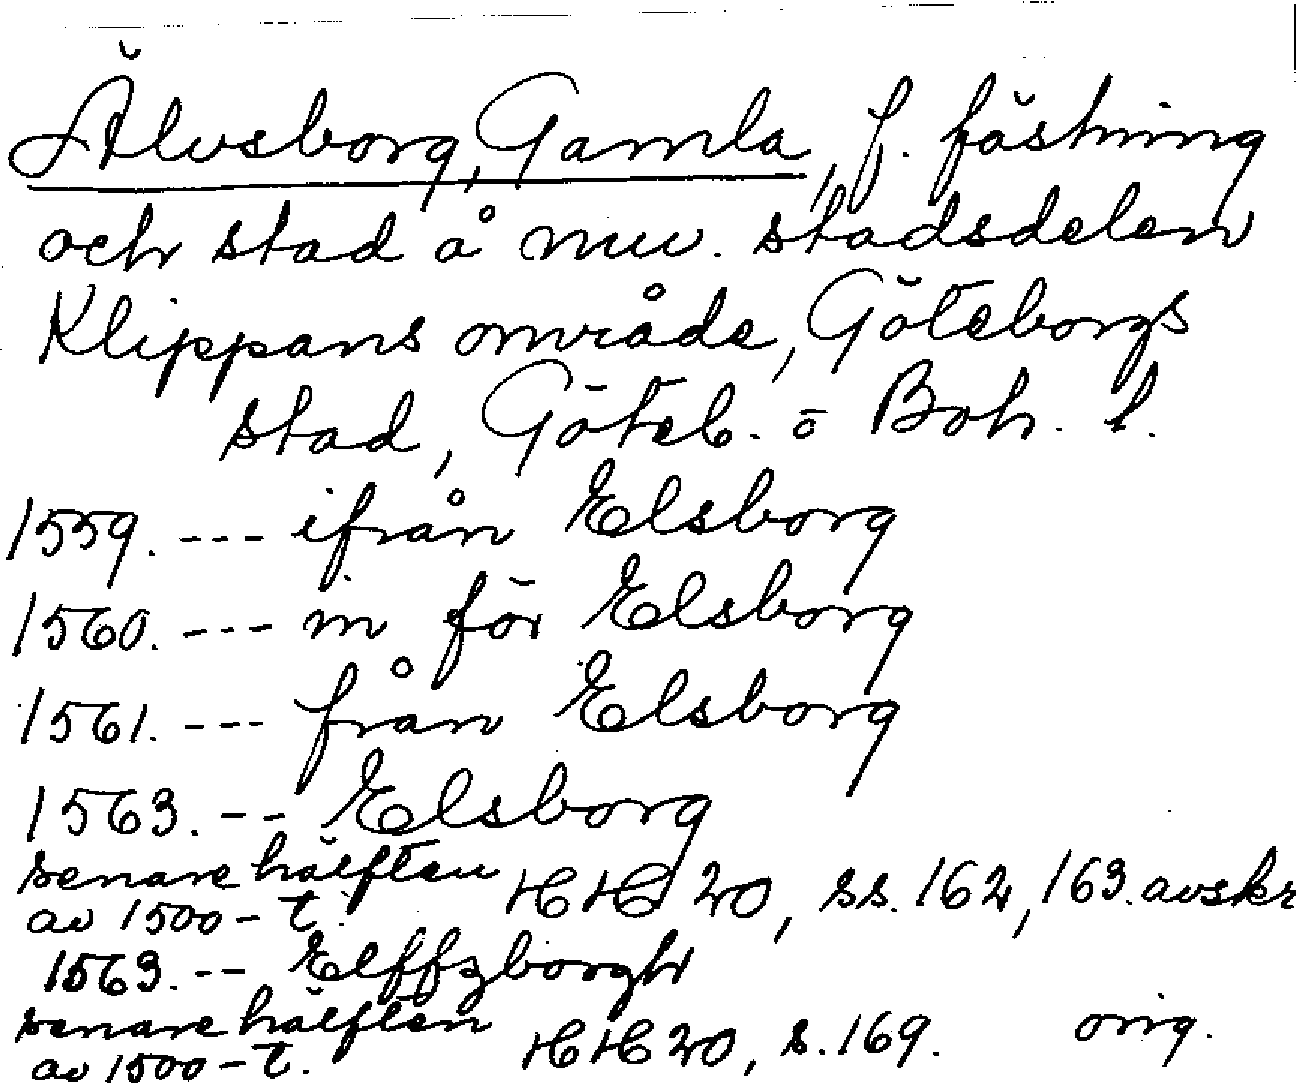 Älvsborg, Gamla, f. fästning
och stad å nuv. stadsdelen
Klippans område, Göteborgs
stad, Göteb. o Boh. l.
1559. --- ifrån Elsborg
1560. --- in för Elsborg
1561. --- från Elsborg
1563. -- Elsborg
senare hälften
av 1500-t. HH 20, ss. 162, 163. avskr
1563. -- Elffzborgh
senare hälften
av 1500-t. HH 20, s. 169. orig.